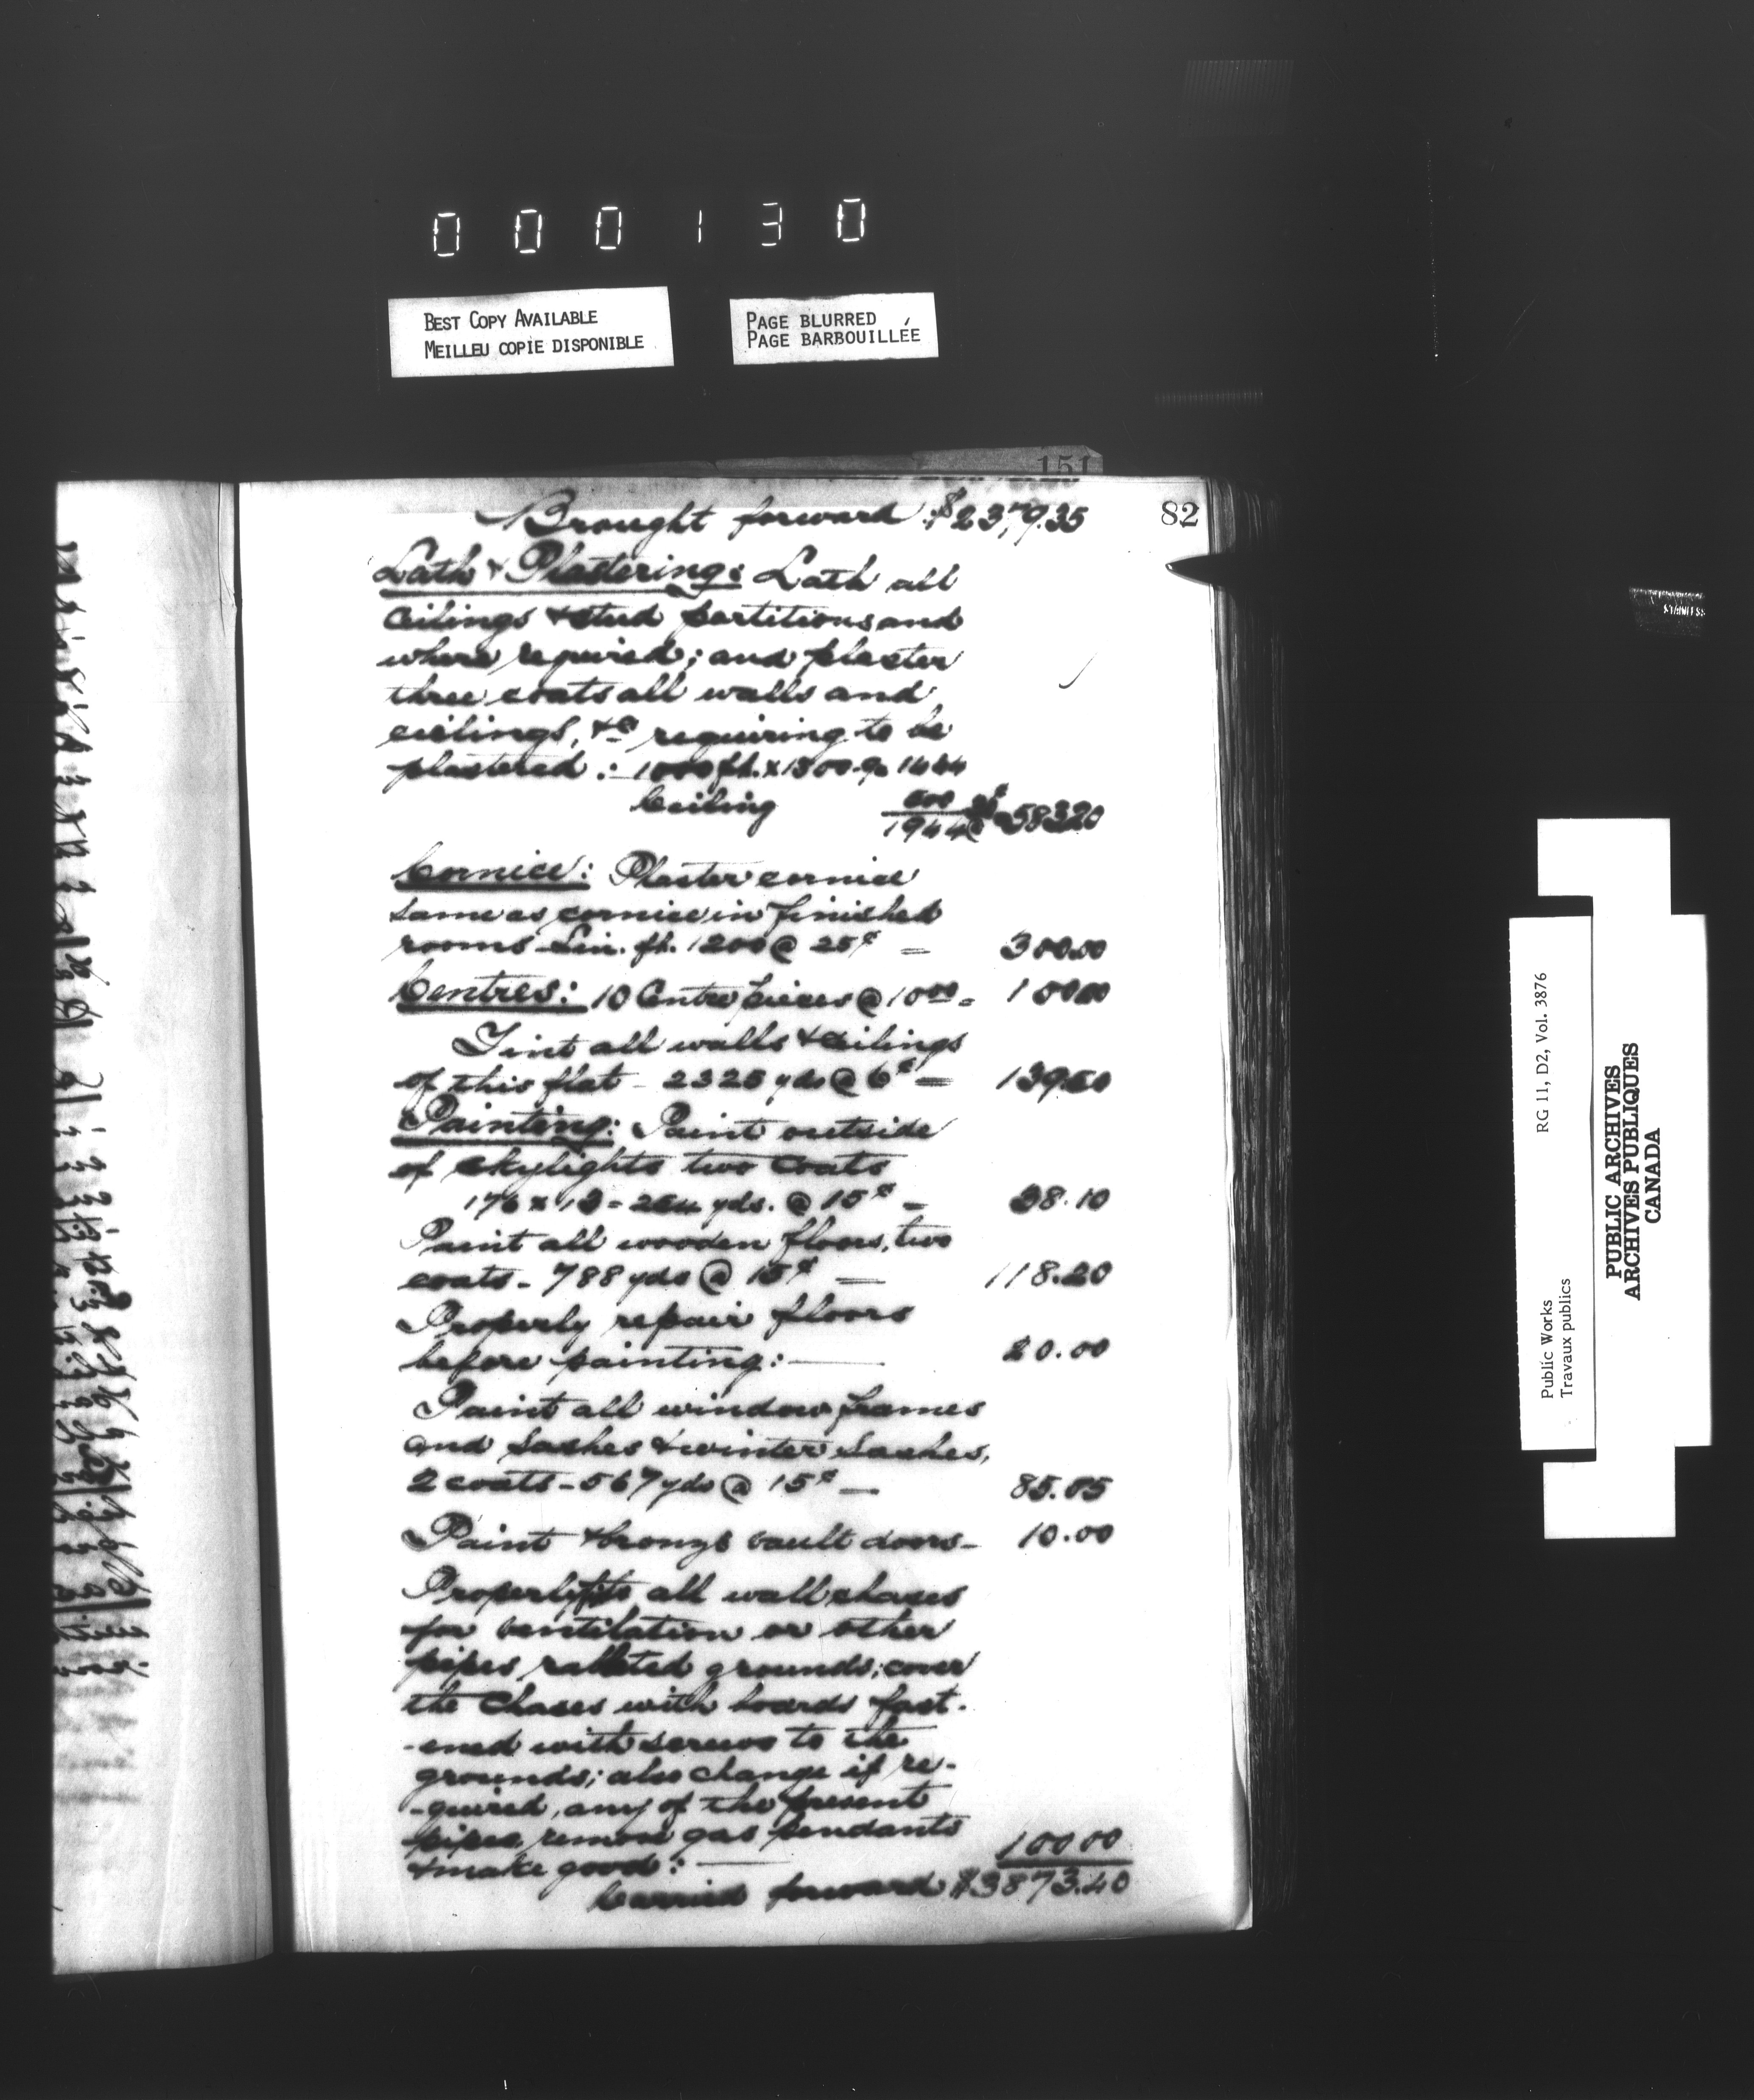 0 0 0 1 3 0
BEST COPY AVAILABLE
MEILLEU COPIE DISPONIBLE
PAGE BLURRED
PAGE BARBOUILLÉE
151
82
Brought forward $2379.35
Lath & Plastering: Lath all
ceilings & stud partitions and
where required; and plaster
three coats all walls and
ceilings, &c requiring to be
plastered:
Ceiling 500
1944 583.20
Cornice: Plaster cornice
same as cornice in finished
rooms Lin. ft. 1200 @ 25¢ = 300.00
Centres: 10 Centre pieces @ 10 00 = 100 00
Tint all walls & ceilings
of this flat - 2325 yds @ 6¢ = 139.50
Painting: Paint outside
of skylights two coats
yds. @ 15¢ = 38.10
Paint all wooden floors, two
coats - 788 yds @ 15¢ — 118.20
Properly repair floors
before painting: — 20.00
Paint all window frames
and sashes & winter sashes,
2 coats - 567 yds @ 15¢ — 85.05
Paint & bronze vault doors - 10.00
Properly all wall chases
for ventilation or other
pipes, rabbeted grounds; cover
the chases with boards fast-
-ened with screws to the
grounds; also change if re-
-quired, any of the present
pipes, remove gas pendants
& make good: — 100 00
Carried forward $3873.40
Public Works
Travaux publics
RG 11, D2, Vol. 3876
PUBLIC ARCHIVES
ARCHIVES PUBLIQUES
CANADA
STAINLESS